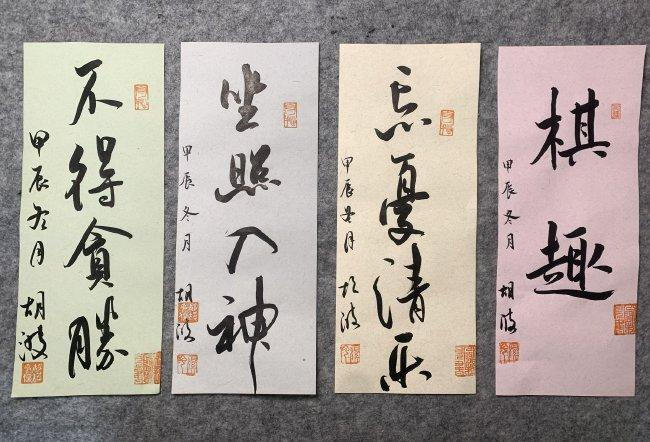 不得貪勝
甲辰冬月 胡波
坐照入神
甲辰冬月 胡波
忘憂清乐
甲辰冬月 胡波
棋趣
甲辰冬月 胡波